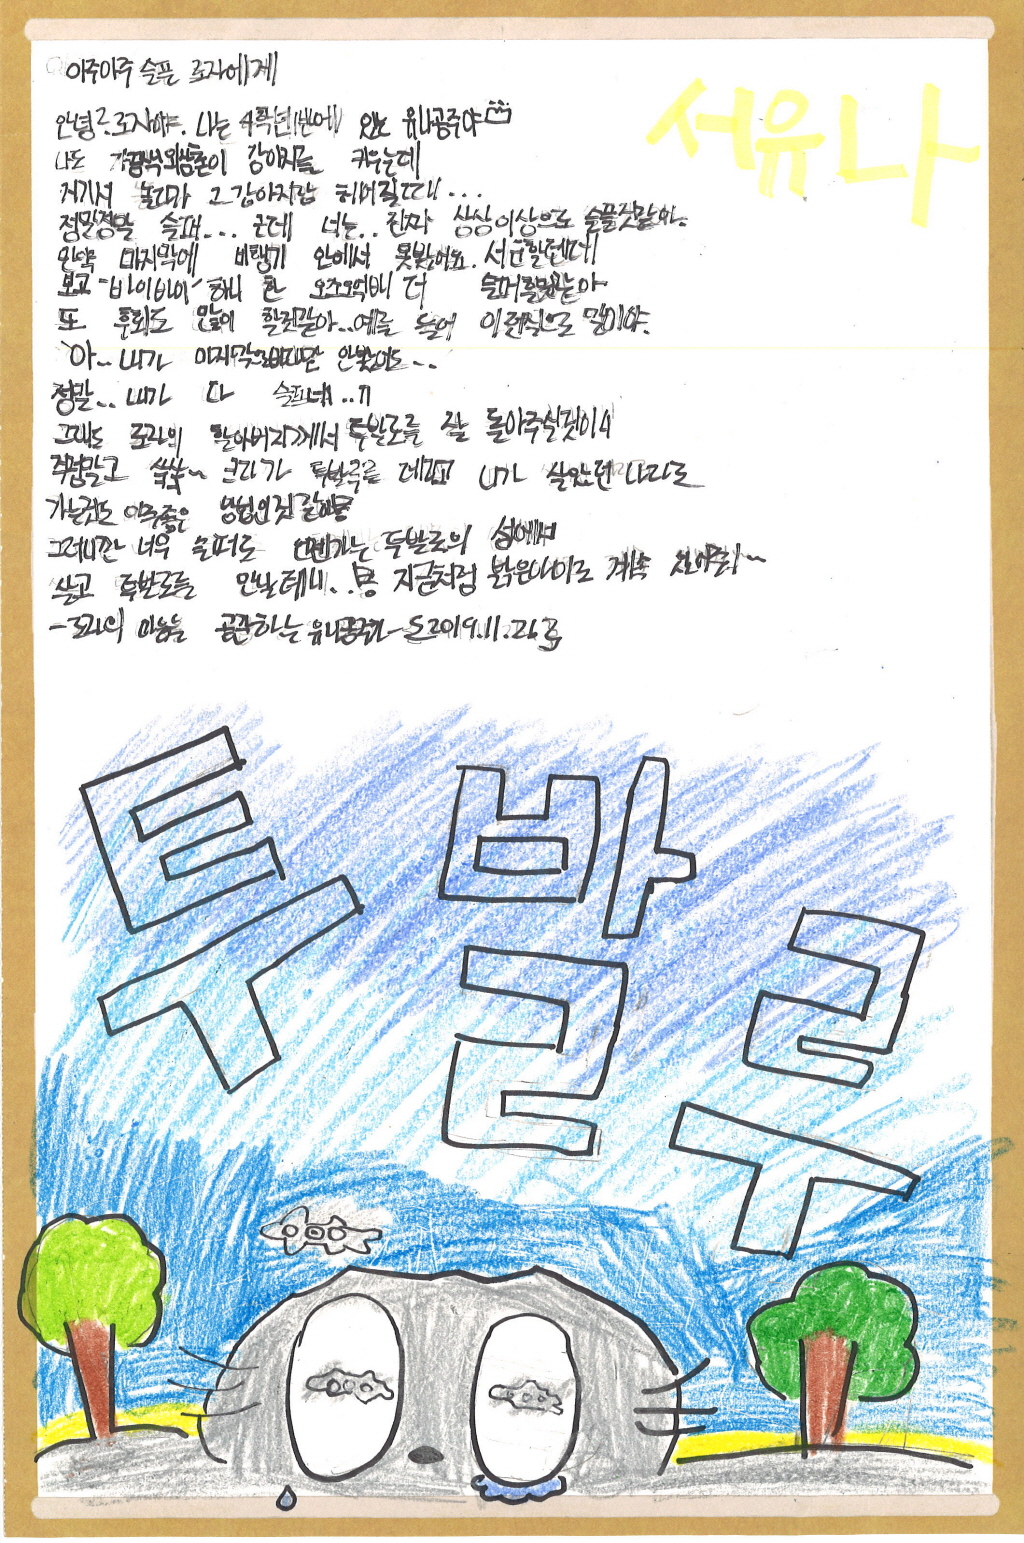 아주아주 슬픈 로자에게
서유나
안녕? 로자야. 나는 4학년1반에 있는 유나공주야
나도 외삼촌이 강아지를 키우는데
거기서 놀다가 그 강아지랑 헤어질때...
정말정말 슬퍼... 근데 너는.. 진짜 상상이상으로 슬플것같아.
만약 마지막에 비행기 안에서 못봤어요. 서운할텐데
보고 "바이바이" 하니 한 오조오억배 더 슬퍼을것같아
또 후회도 많이 할것같아.. 예를 들어 이런식으로 말이야.
아~ 내가 마지막 안봤어도..
정말.. 내가 다 슬프네..ㅠ
그래도 로자의 할아버지께서 투발루를 잘 돌아주실것이니
걱정말고 쑥쑥~ 크다가 투발루를 데리고 내가 살았던 나라로
가는것도 아주좋은 방법인것 같아
그러니깐 너무 슬퍼로 언젠가는 투발루의 섬에서
살고 투발루를 만날테니.. 지금처럼 밝은아이로 계속 자라줘~
-로자의 마음을 공감하는 유나공주가- 2019.11.26
투발루